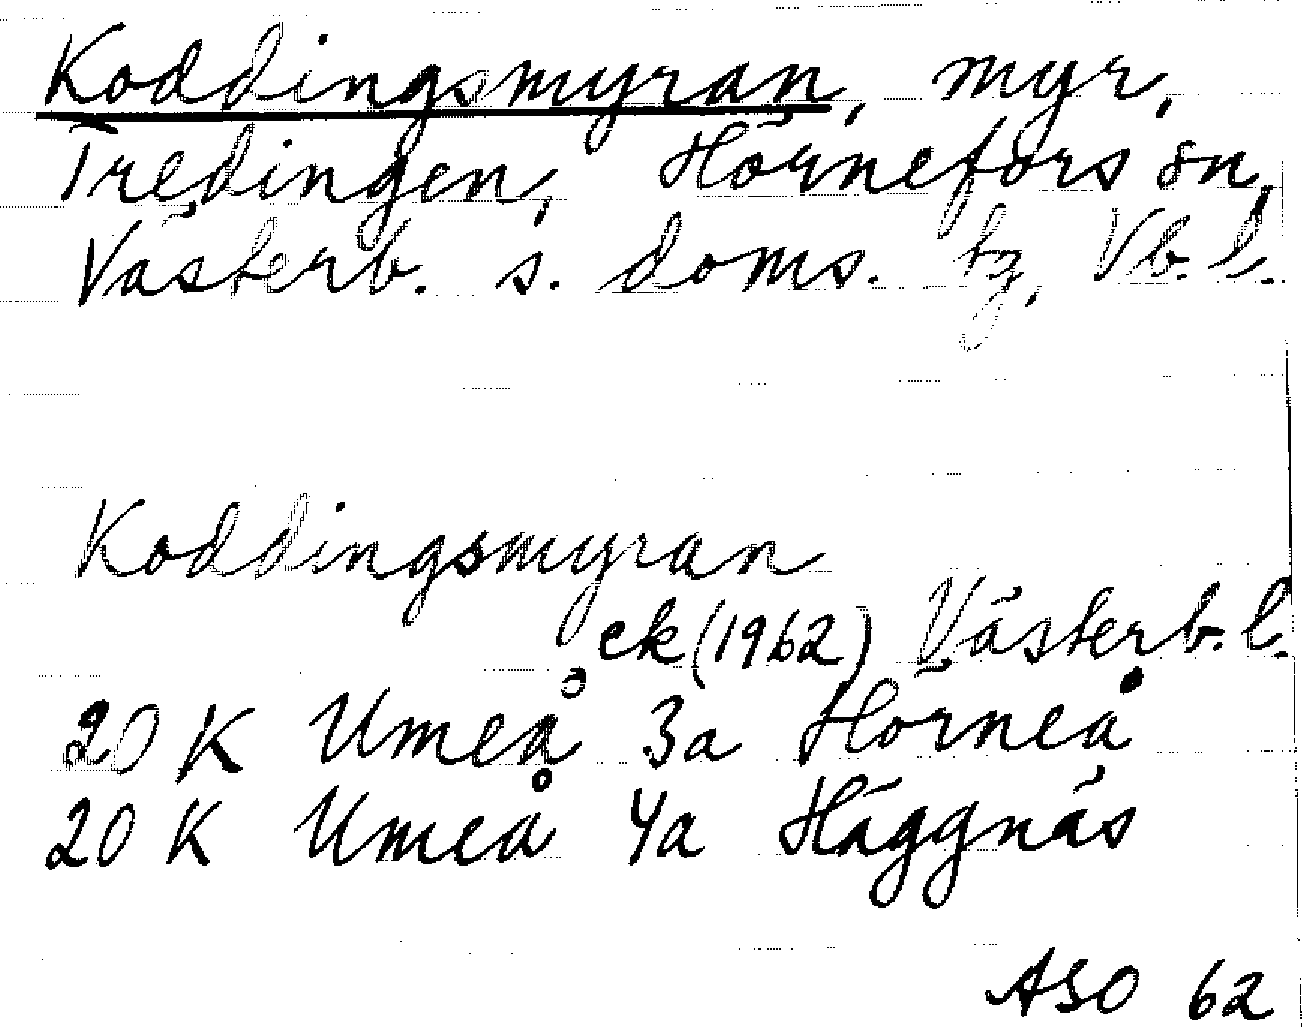 Koddingsmyran, myr,
Tredingen, Hörnefors sn,
Västerb. s. doms. tg, Vb. l.
Koddingsmyran
ek (1962) Västerb. l.
20 K Umeå 3a Hörneå
20 K Umeå 4a Häggnäs
ASO 62